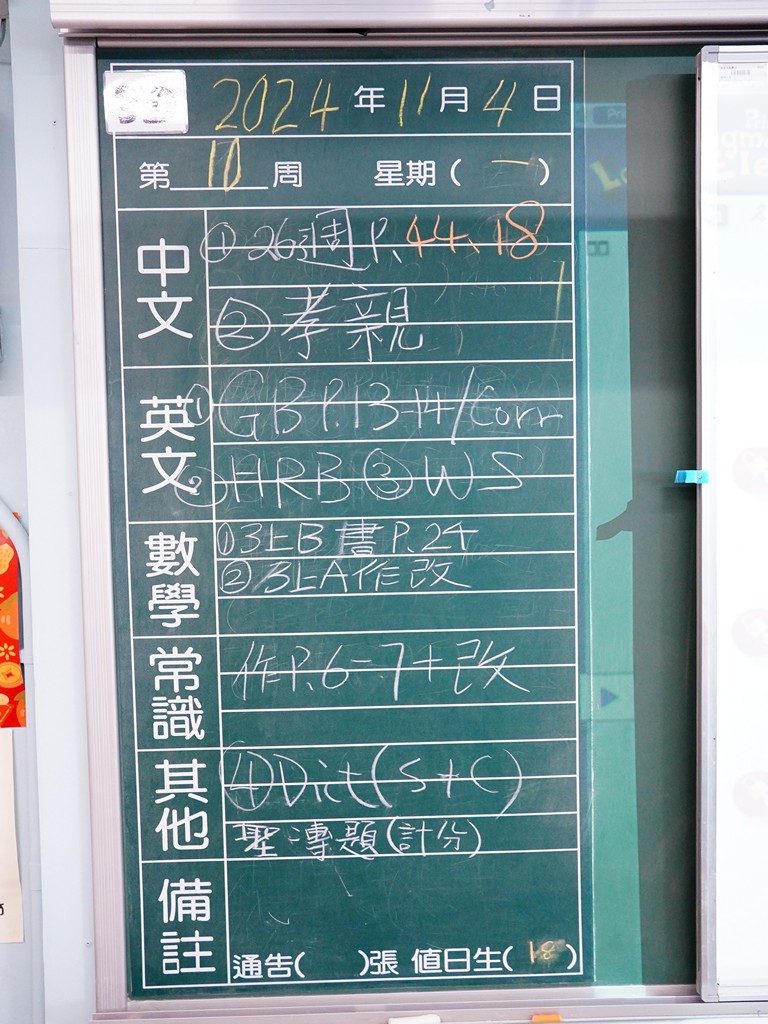 2024年11月4日
第10周 星期(一)
中文
①26週 P.44、18
②孝親
英文
①GB P.13-14/Corr
②HRB ③WS
數學
①3上B 書 P.24
②3上A作改
常識
作P.6-7+改
其他
④Dict(S+C)
聖-專題(計分)
備註
通告( )張 值日生(18)